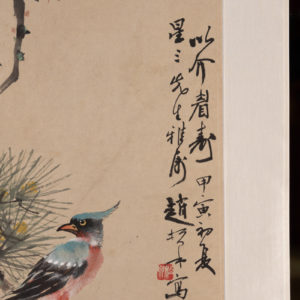 以介眉壽 甲寅初夏
星三先生雅屬 趙
寫